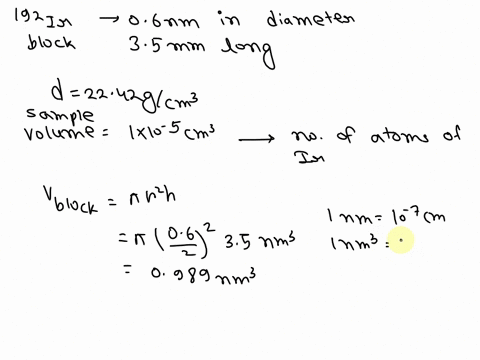 192Ir → 0.6nm in diameter
block 3.5mm long
d = 22.42g/cm³
sample
volume = 1×10⁻⁵cm³ → no. of atoms of
Ir
Vblock = πr²h
= π(0.6/2)² 3.5 nm³
= 0.989 nm³
1 nm = 10⁻⁷cm
1 nm³ =